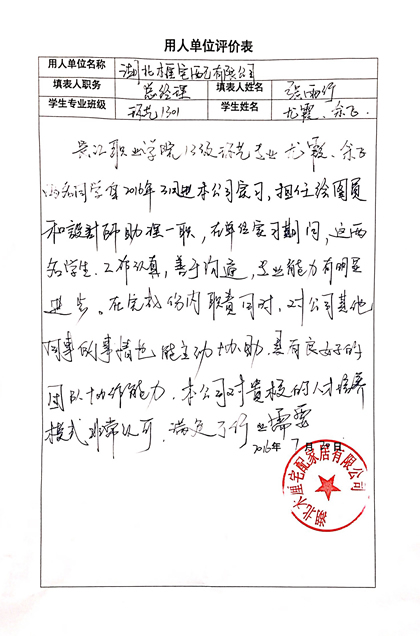 用人单位评价表
用人单位名称 湖北木里宅配家居有限公司
填表人职务 总经理 填表人姓名
学生专业班级 环艺1301 学生姓名 尤霞、余飞
职业学院13级环艺专业尤霞、余飞
两名同学自2016年3月进本公司实习，担任绘图员
和設計师助理一职，在单位实习期间，这两
名学生工作认真，善于沟通，专业能力有明显
进步。在完成份内职责同时，对公司其他
同事的事情也能主动协助，具有良好的
团队协作能力。本公司对贵校的人才培养
模式非常认可，满足了行业需要
2016年7月 日
湖北木里宅配家居有限公司